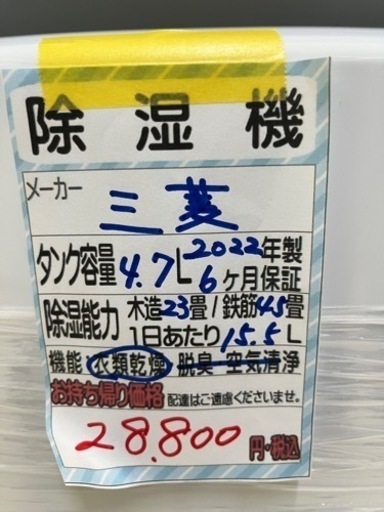 除湿機
メーカー 三菱
タンク容量 4.7L 2022年製 6ヶ月保証
除湿能力 木造23畳/鉄筋45畳
1日あたり15.5L
機能 衣類乾燥 脱臭 空気清浄
お持ち帰り価格 配達はご遠慮くださいませ。
28.800 円・税込